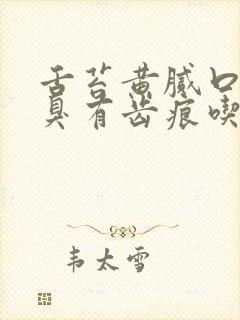 舌苔黄腻口
臭有齿痕喫
韦太雪